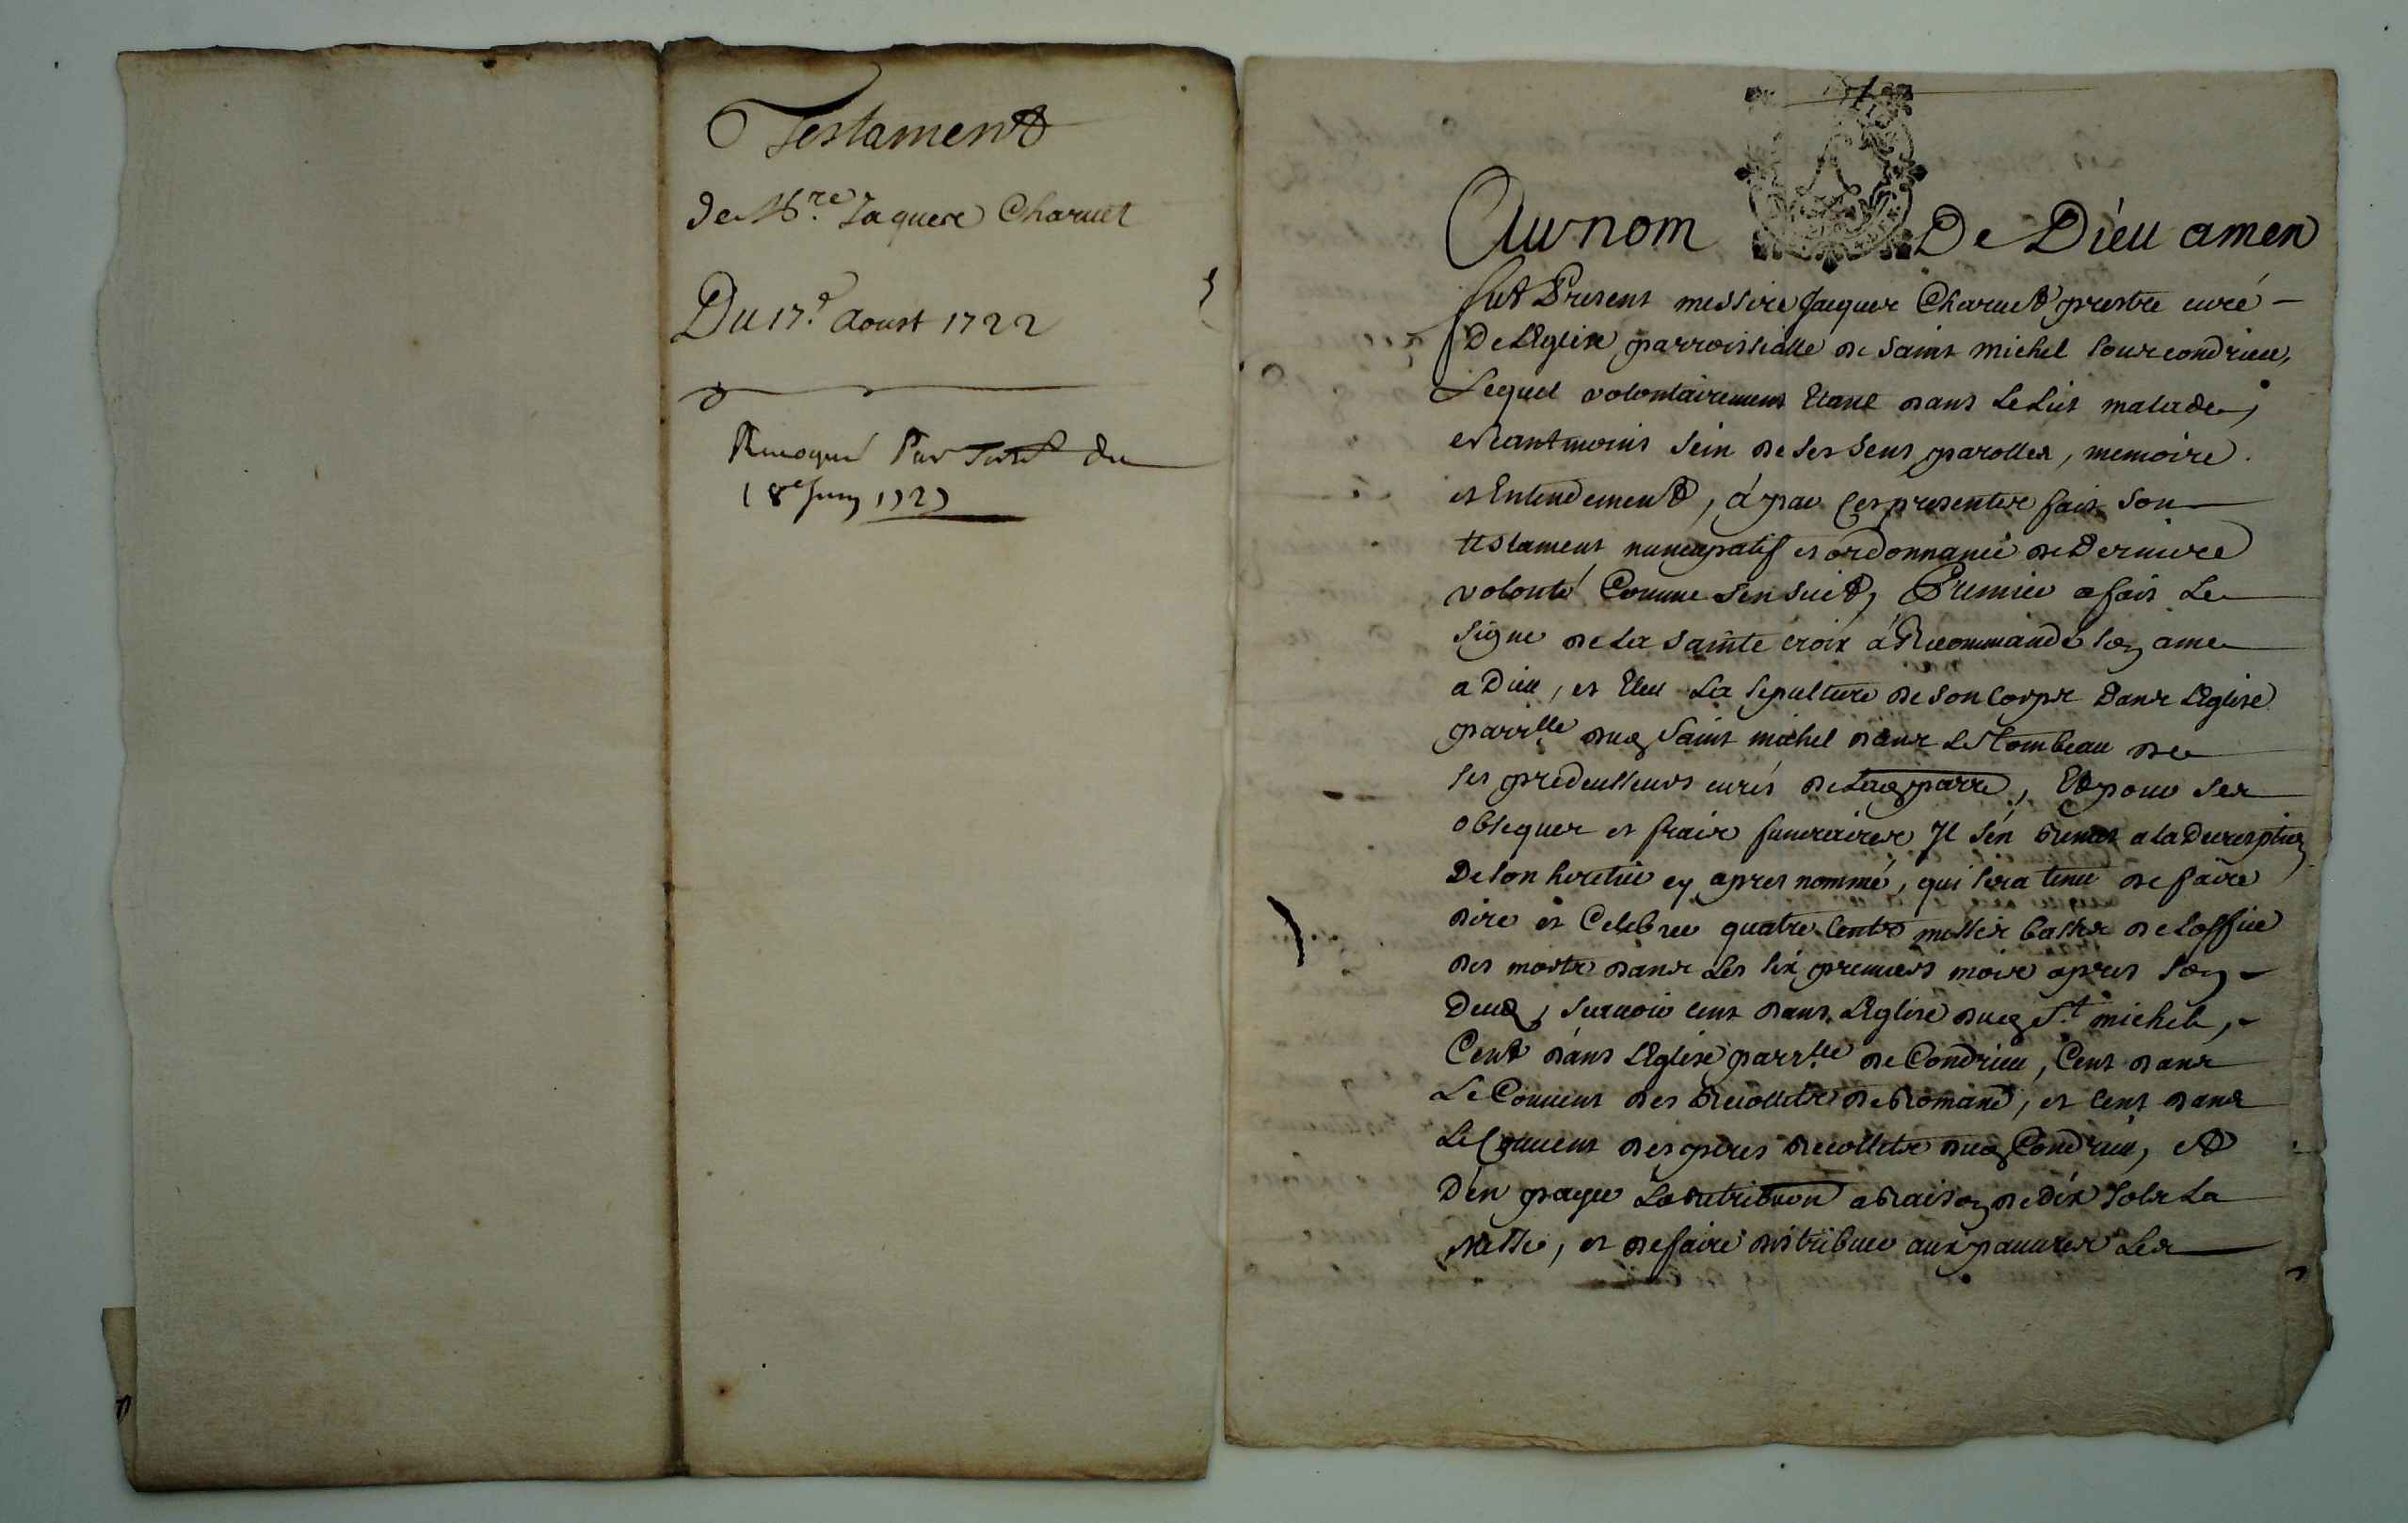 Testament
de Mre Jaques Charuet
Du 17e Aoust 1722
Revoqué Par Testt du
18e Juin 1727
Au nom De Dieu amen
fut Present messire Jacques Charuet prestre curé
De L'Eglise parroissialle de Saint michel sous condrieu,
Lequel volontairement Etant dans Le Lit malade,
neantmoins sein de ses sens, parolles, memoire
et Entendement, à par ces presentes fait son
testament nuncupatif et ordonnance de Derniere
volonté Comme s'en suit, Premier a fait Le
signe de La sainte croix à Recommandé son ame
a Dieu, et Eleu La sepulture de son Corps Dans L'Eglise
parrlle dud Saint michel dans Le tombeau de
ses predecesseurs curés de Lad parre, Et pour ses
obseques et frais funeraires Il s'en Remet a la Discretion
De son heritier cy apres nommé, qui sera tenu de faire
dire et Celebrer quatre Cents messes basses de L'office
des morts dans Les six premiers mois apres son
Deces, scavoir cent dans L'Eglise dud St. michel,
Cent dans L'Eglise parrlle de Condrieu, Cent dans
Le Couvent des Recollets de Romans, et cent dans
Le Couvent des peres Recollets dud Condrieu, et
D'en payer La retribution a Raison de dix sols La
Messe, et de faire distribuer aux pauvres Les